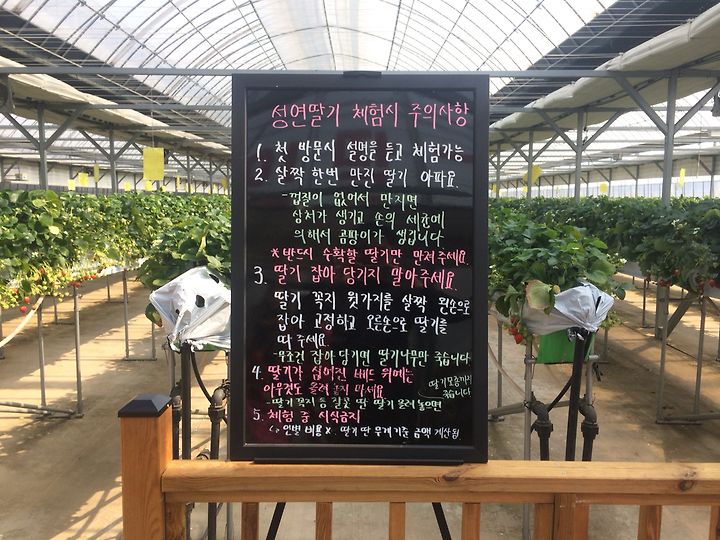 성연딸기 체험시 주의사항
1. 첫 방문시 설명을 듣고 체험가능
2. 살짝 한번 만진 딸기 아파요.
-껍질이 없어서 만지면
상처가 생기고 손의 세균에
의해서 곰팡이가 생깁니다
*반드시 수확할 딸기만 만져주세요.
3. 딸기 잡아 당기지 말아주세요.
딸기 꼭지 윗가지를 살짝 왼손으로
잡아 고정하고 오른손으로 딸기를
따 주세요.
-무조건 잡아 당기면 딸기나무만 죽습니다
4. 딸기가 심어진 베드 위에는
아무것도 올려 놓지 마세요
-딸기 꼭지 등 잘못 딴 딸기 올려 놓으면
딸기모종까지
죽습니다
5. 체험 중 시식금지
인별 비용 X 딸기 딴 무게 기준 금액 계산됨